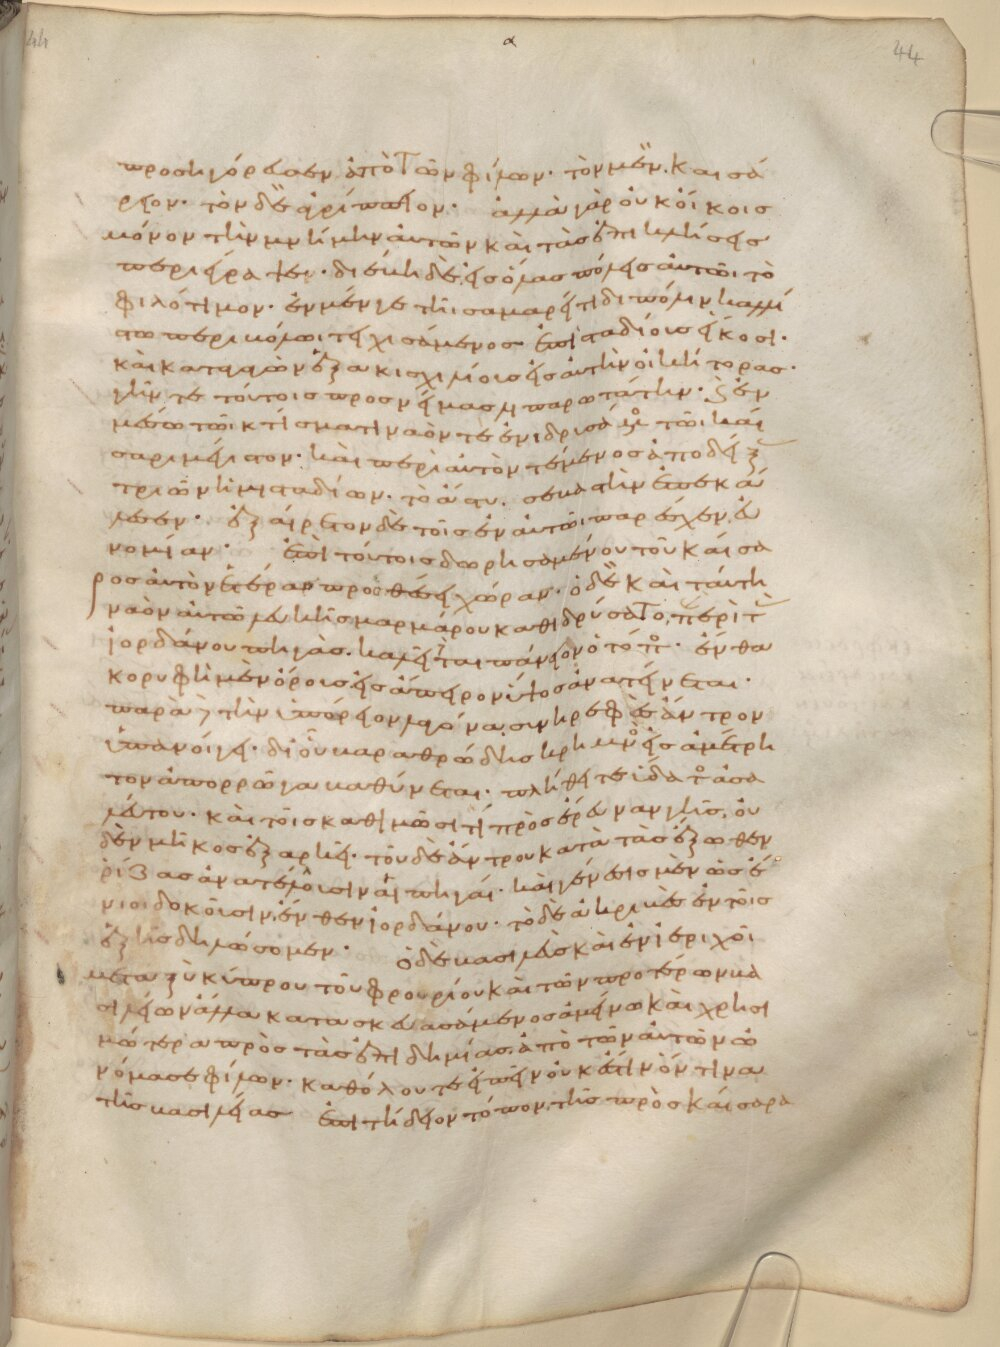 προσηγόρευσεν ἀπὸ τῶν φίλων· τὸν μὲν. Καισά
ρειον· τὸν δὲ ἀγρίππειον· ἀλλὰ γὰρ οὐκ οἴκοις
μόνον τὴν μνήμην αὐτῶν καὶ τὰς ἐπικλήσεις
περιέγραψε· διέβη δὲ εἰς ὅλας πόλεις αὐτῶι τὸ
φιλότιμον· ἐν μέν γε τῆι σαμαρείτιδι πόλιν καλλί
στω περιβόλωι τειχισάμενος ἐπὶ σταδίοις εἴκοσι·
καὶ καταγαγὼν ἑξακισχιλίους εἰς αὐτὴν οἰκήτορας·
γῆν τε τούτοις προσνείμας λιπαρωτάτην· καὶ ἐν
μέσω τῶι κτίσματι ναόν τε ἐνιδρυσάμενος τῶι καί
σαρι μέγιστον· καὶ περὶ αὐτὸν τέμενος ἀποδείξας
τριῶν ἡμισταδίων· τὸ ἄστυ. σεβαστὴν ἐπεκά
λεσεν· ἐξαίρετον δὲ τοῖς ἐν αὐτῶι παρέσχεν εὐ
νομίαν· ἐπὶ τούτοις δωρησαμένου τοῦ καίσα
ρος αὐτὸν ἑτέρας προσθέσει χώραν· ὁ δὲ καὶ ταύτη
ναὸν αὐτῶ λευκῆς μαρμάρου καθιδρύσατο, περὶ τὰς
ἰορδάνου πηγάς. καλεῖται πάνειον ὁ τόπος· ἔνθα
κορυφὴ μὲν ὄρους εἰς ἄπειρον ὕψος ἀνατείνεται·
παρὰ δὲ τὴν ὑπόρειον λαγόνα, συνηρεφὲς ἄντρον
ὑπανοίγει· δι οὗ βαραθρώδης κρημνὸς εἰς ἀμέτρη
τον ἀπορρῶγα βαθύνεται· πλήθει τε ὕδατος ἀσα
λεύτου· καὶ τοῖς καθιμῶσί τι πρὸς ἔρευναν γῆς, οὐ
δὲν μῆκος ἐξαρκεῖ· τοῦ δὲ ἄντρου κατὰ τὰς ἔξωθεν
ῥίζας ἀνατέλλουσιν αἱ πηγαί· καὶ γένεσις μὲν ὡς ἔ
νιοι δοκοῦσιν, ἔνθεν ἰορδάνου· τὸ δὲ ἀκριβὲς ἐν τοῖς
ἑξῆς δηλώσομεν· ὁ δὲ βασιλεὺς καὶ ἐν ἱεριχοῖ
μεταξὺ κύπρου τοῦ φρουρίου καὶ τῶν προτέρων βα
σιλείων ἄλλα κατασκευασάμενος ἀμείνω καὶ χρησι
μώτερα πρὸς τὰς ἐπιδημίας. ἀπὸ τῶν αὐτῶν ὠ
νόμασε φίλων· καθόλου τε εἰπεῖν οὐκ ἔστιν ὅντινα
τῆς βασιλείας ἐπιτήδειον τόπον, τῆς πρὸς καίσαρα
44
44